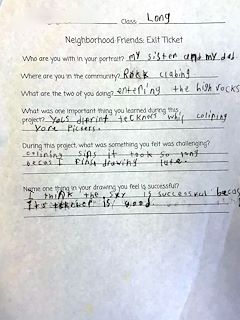 Class: Long
Neighborhood Friends: Exit Ticket
Who are you with in your portrait? my sister and my dad
Where are you in the community? Rock clabing
What are the two of you doing? entering the high rocks
What was one important thing you learned during this
project? Yous diprint tecknecs whil coloring
Yore Picsers.
During this project, what was something you felt was challenging?
coloring sins it took so long
becas I finst drawing late.
Name one thing in your drawing you feel is successful?
I think the sky is successful becas
Its is good.